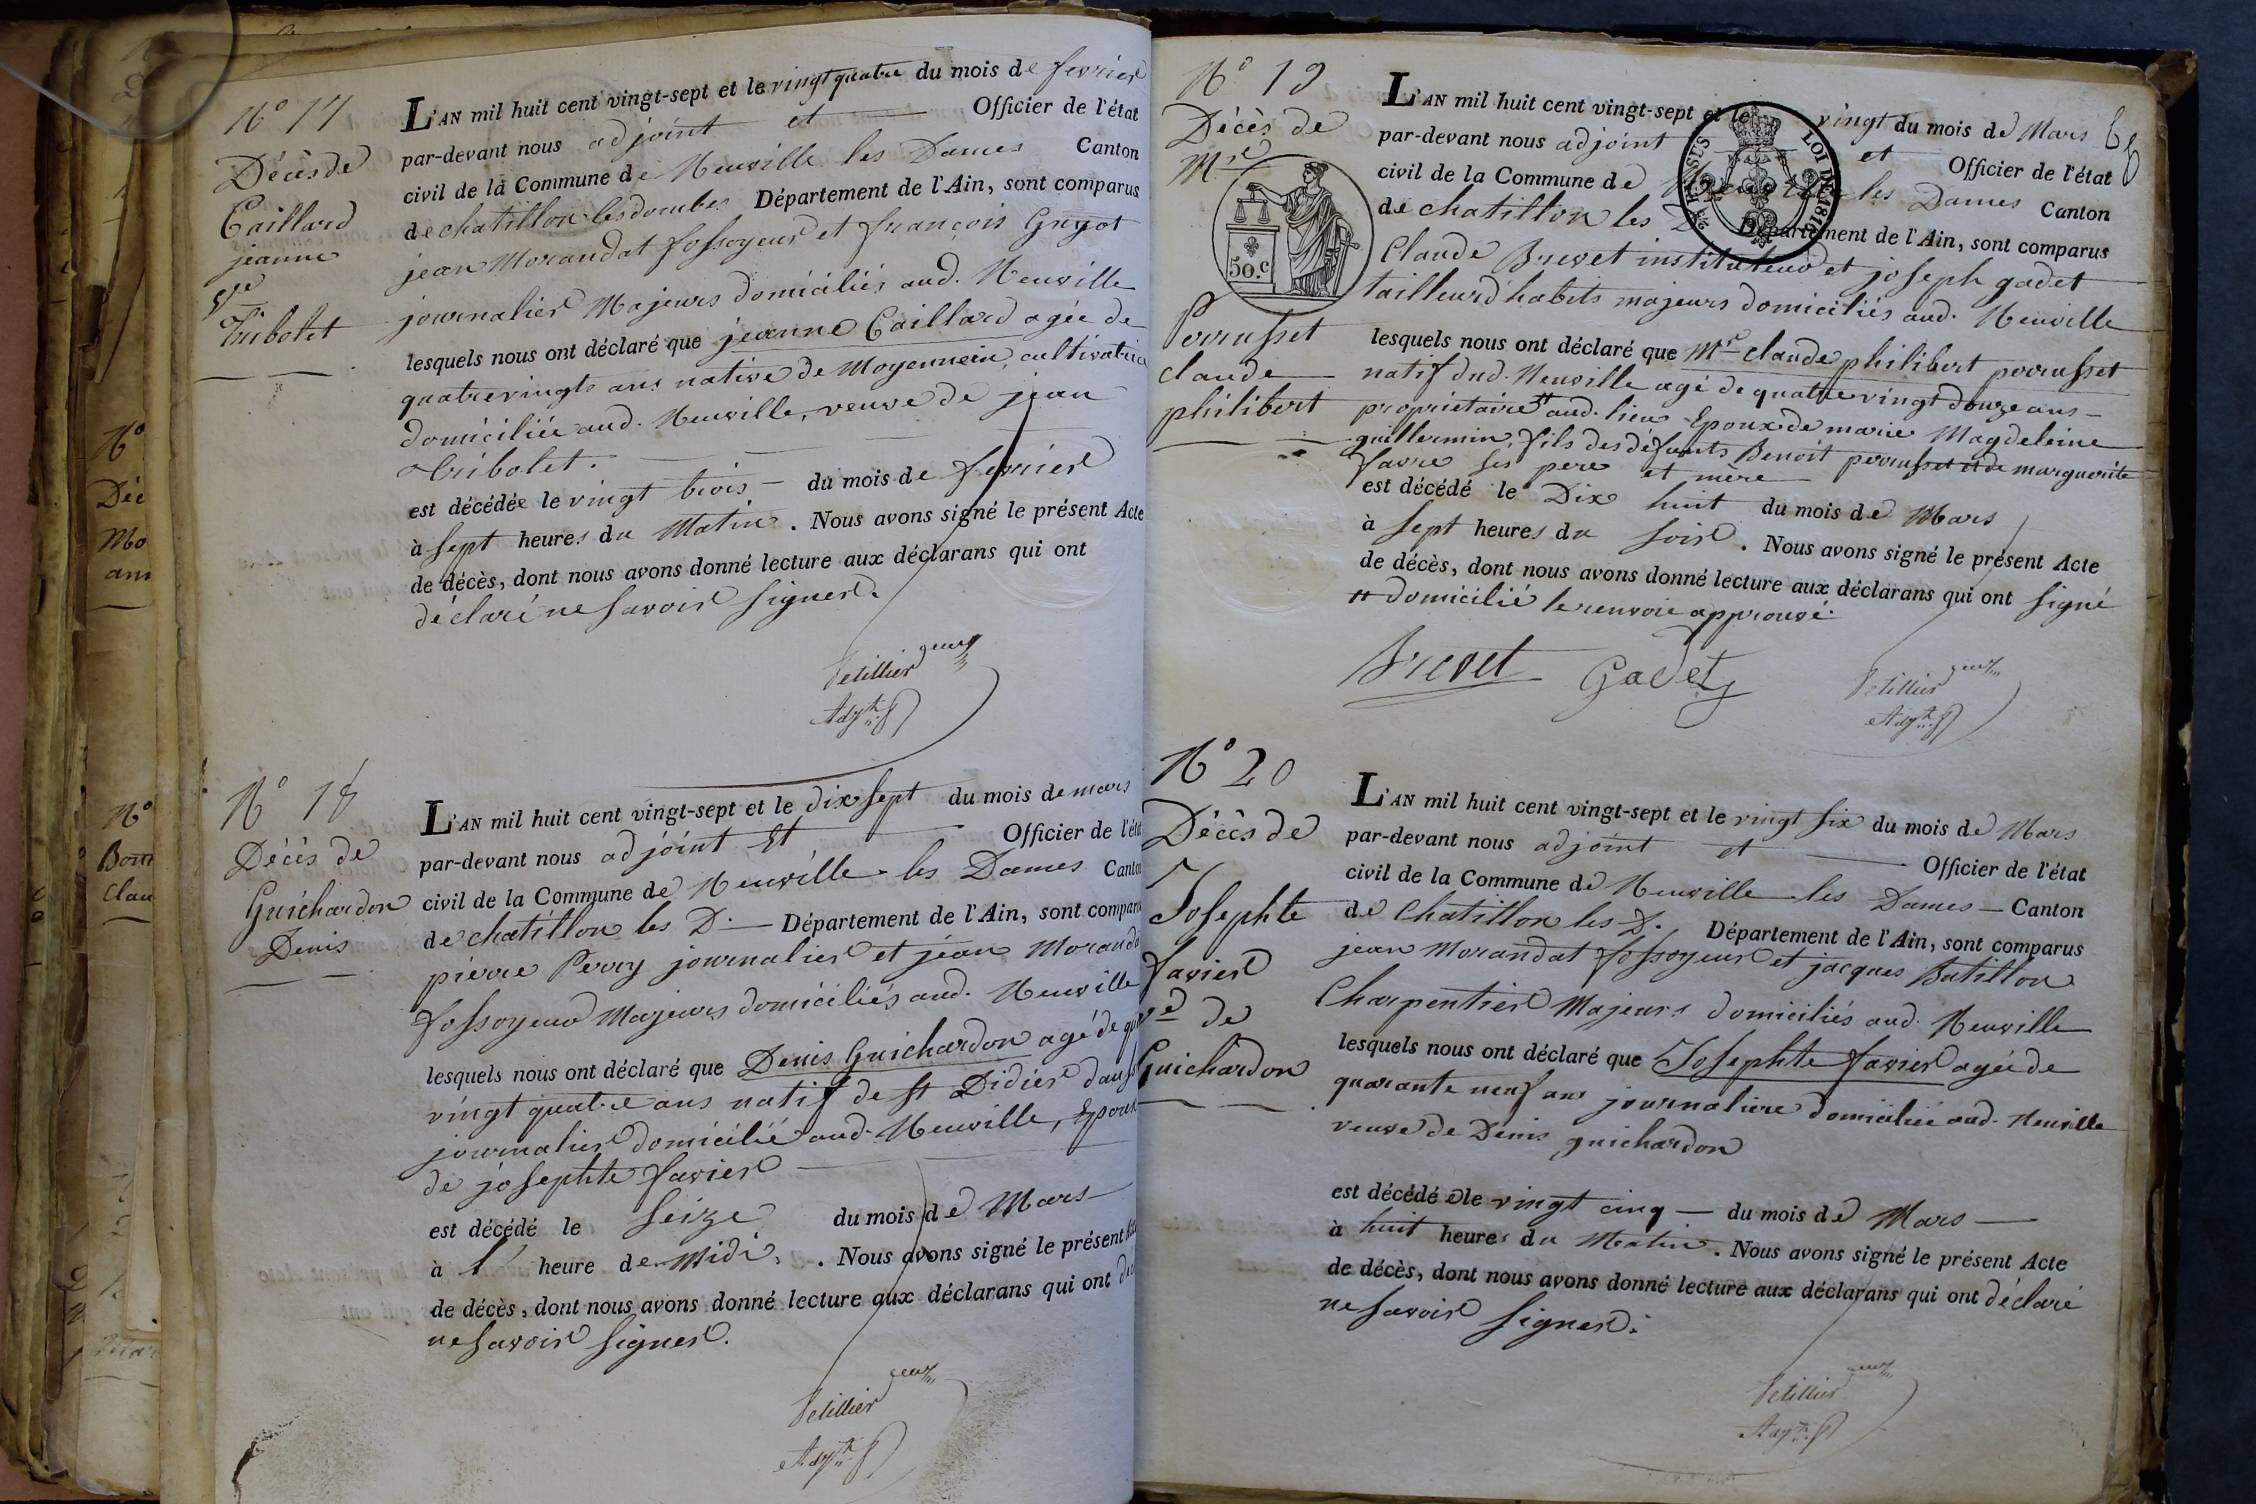 N° 17
Décès de
Caillard
jeanne
v.ve
Tribolet
L'AN mil huit cent vingt-sept et le vingt quatre du mois de fevrier
par-devant nous adjoint et Officier de l'état
civil de la Commune de Neuville les Dames Canton
de chatillon les dombes Département de l'Ain, sont comparus
jean Morandat fossoyeur et françois Guyot
journalier Majeurs domiciliés aud. Neuville
lesquels nous ont déclaré que jeanne Caillard agée de
quatrevingts ans native de Moyenmein, cultivatrice
domiciliée aud. Neuville, veuve de jean
Tribolet.
est décédée le vingt trois du mois de fevrier
à sept heures du Matin. Nous avons signé le présent Acte
de décès, dont nous avons donné lecture aux déclarans qui ont
déclaré ne savoir signer.
Petillier
Adj.t
N° 18
Décès de
Guichardon
Denis
L'AN mil huit cent vingt-sept et le dix sept du mois de mars
par-devant nous adjoint Et Officier de l'état
civil de la Commune de Neuville les Dames Canton
de chatillon les D. Département de l'Ain, sont comparus
pierre Perry journalier et jean Morandat
fossoyeur Majeurs domiciliés aud. Neuville
lesquels nous ont déclaré que Denis Guichardon agé de
vingt quatre ans natif de st Didier
journalier domicilié aud. Neuville, Epoux
de josephte favier
est décédé le seize du mois de Mars
à 1 heure de Midi. Nous avons signé le présent
de décès, dont nous avons donné lecture aux déclarans qui ont
ne savoir signer.
Petillier
Adj.t
N° 19
Décès de
Mre
50.c
Perrusset
claude
philibert
LOI DE 1816
L'AN mil huit cent vingt-sept et le vingt du mois de Mars
par-devant nous adjoint et Officier de l'état
civil de la Commune de Neuville les Dames Canton
de chatillon les D. Département de l'Ain, sont comparus
Claude Brevet instituteur et joseph gadet
tailleur d'habits majeurs domiciliés aud. Neuville
lesquels nous ont déclaré que Mre claude philibert perrusset
natif dud. Neuville agé de quatre vingt douze ans
proprietaire aud. lieu Epoux de marie Magdeleine
guillermin, fils des défunts Benoit perrusset et de marguerite
favre ses pere et mère
est décédé le Dix huit du mois de Mars
à sept heures du soir. Nous avons signé le présent Acte
de décès, dont nous avons donné lecture aux déclarans qui ont signé
domicilié le renvoie approuvé.
Brevet Gadet Petillier
Adj.t
N° 20
Décès de
Josephte
favier
ve de
Guichardon
L'AN mil huit cent vingt-sept et le vingt six du mois de Mars
par-devant nous adjoint et Officier de l'état
civil de la Commune de Neuville les Dames Canton
de Chatillon les D. Département de l'Ain, sont comparus
jean Morandat fossoyeur et jacques Butillon
Charpentier Majeurs domiciliés aud. Neuville
lesquels nous ont déclaré que Josephte favier agée de
quarante neuf ans journaliere domiciliée aud. Neuville
veuve de Denis guichardon
est décédée le vingt cinq du mois de Mars
à huit heures du Matin. Nous avons signé le présent Acte
de décès, dont nous avons donné lecture aux déclarans qui ont déclaré
ne savoir signer.
Petillier
Adj.t